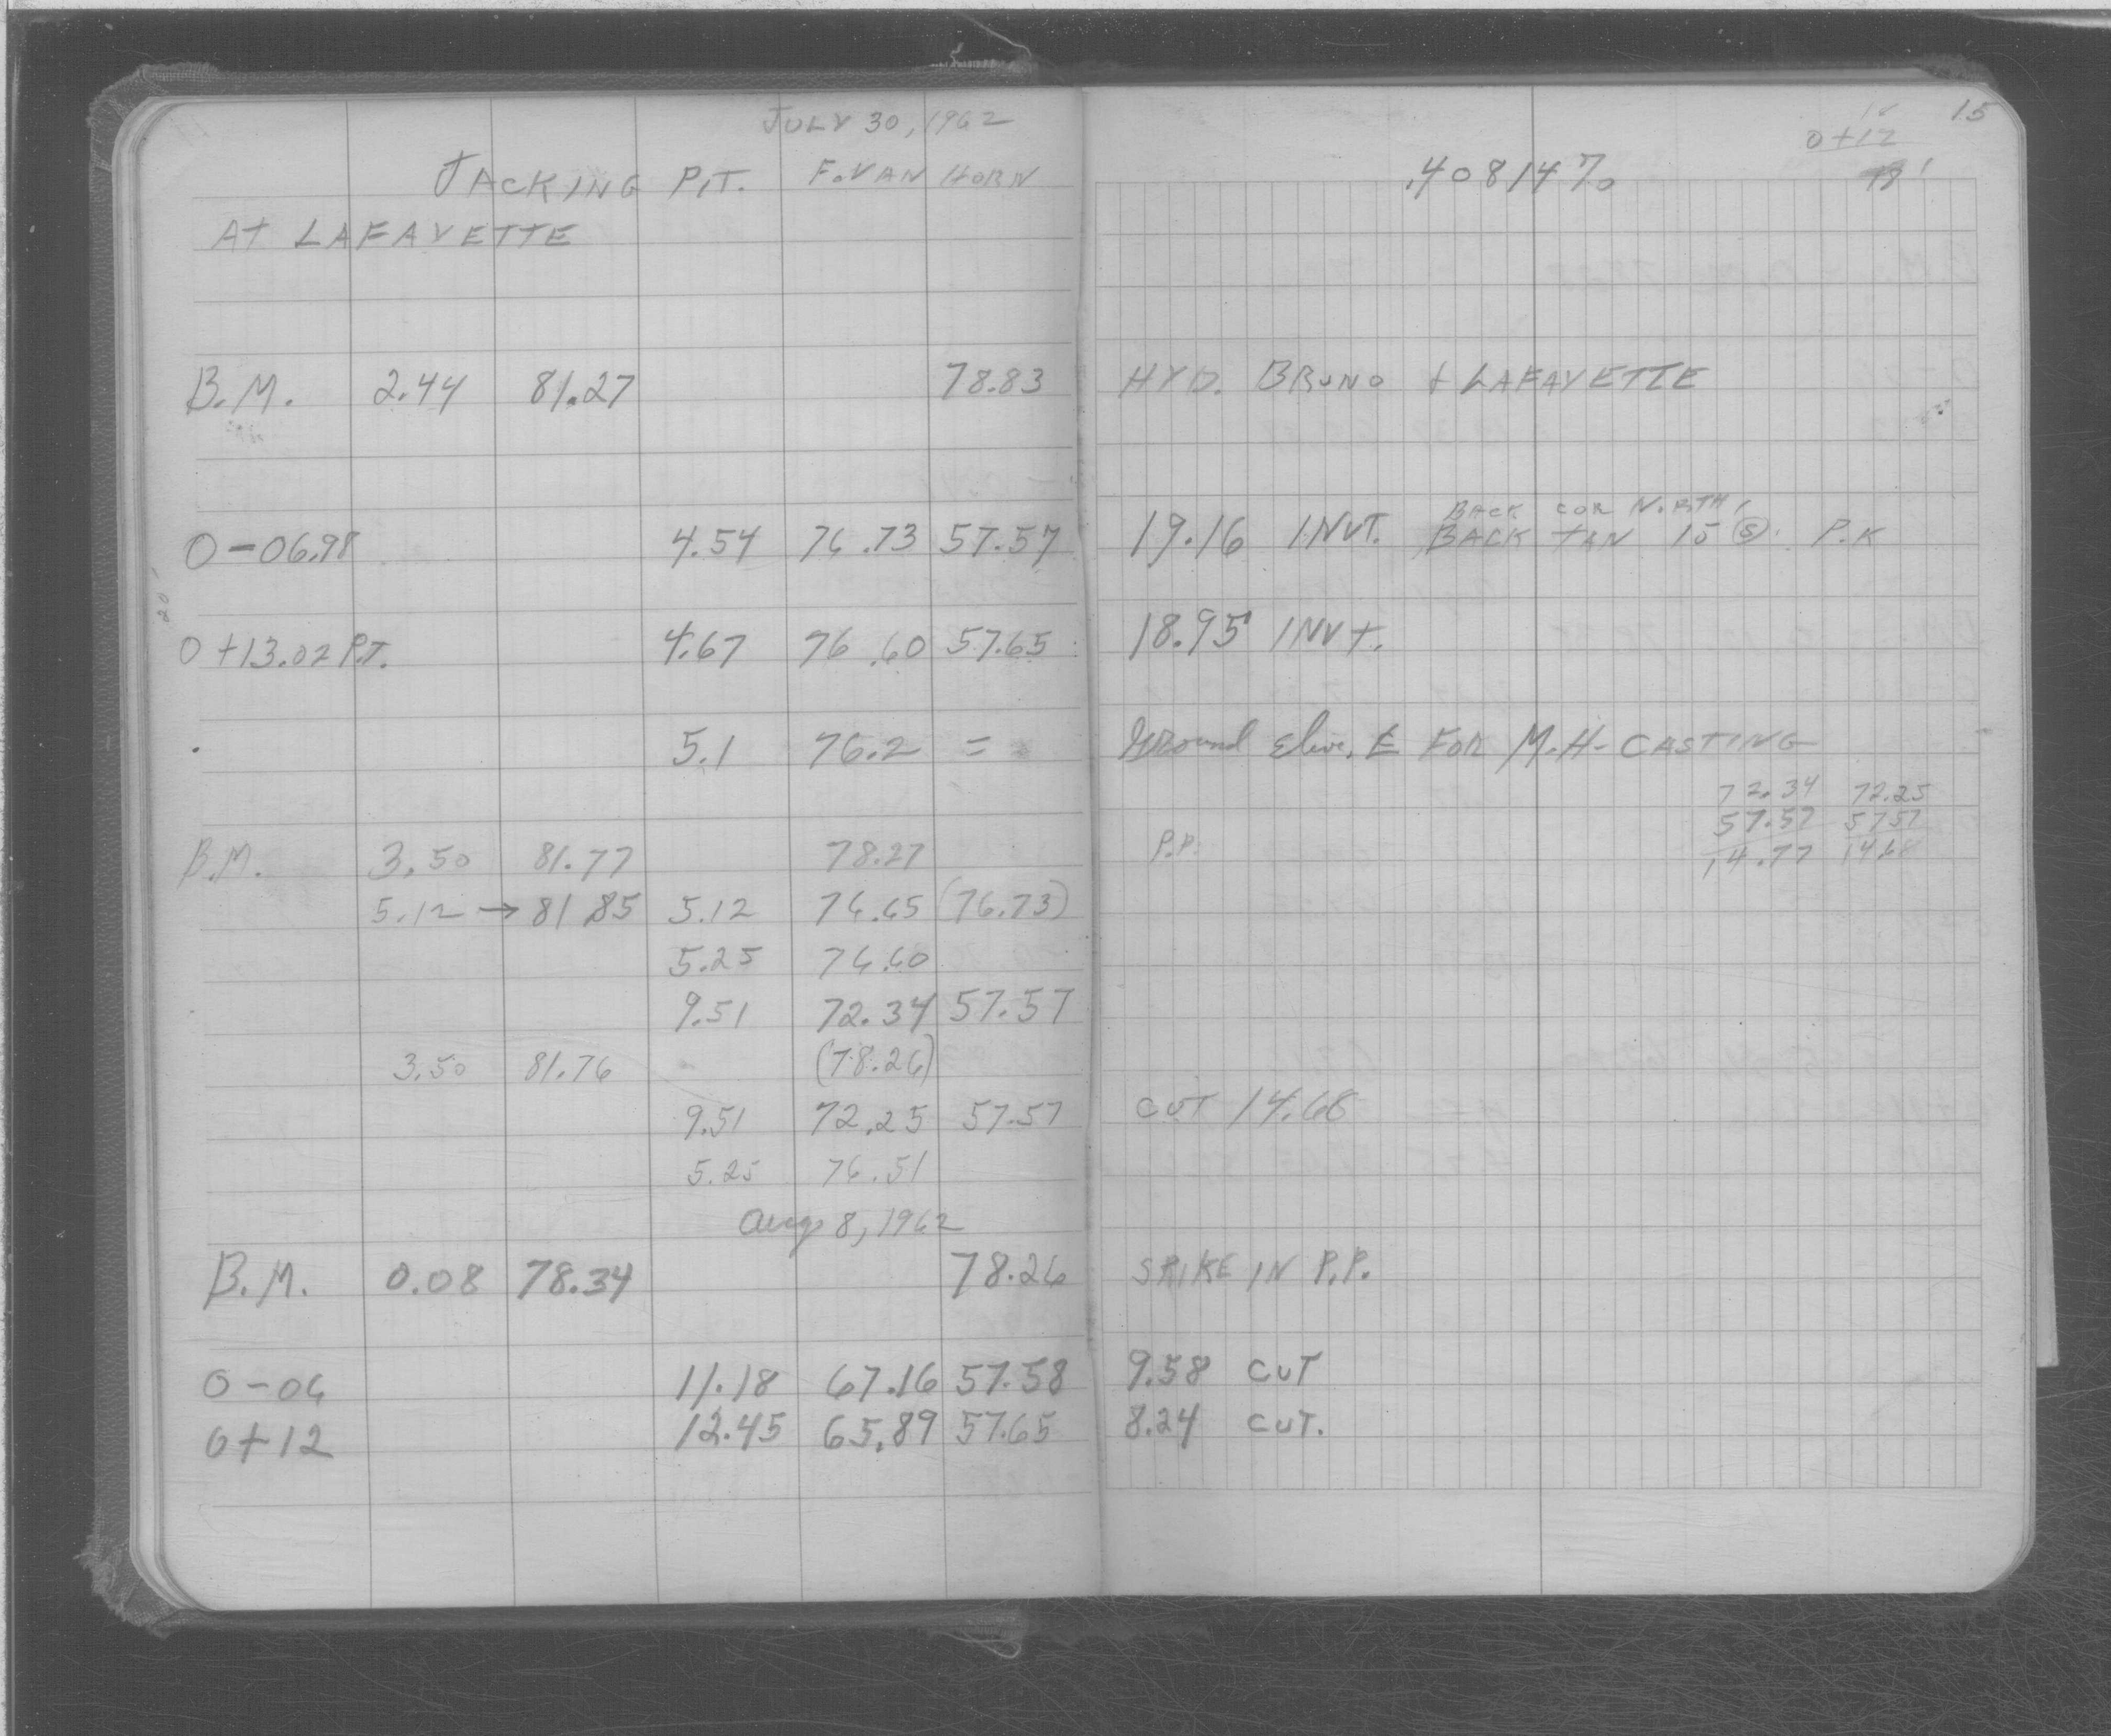 JULY 30, 1962
JACKING PIT. F. VAN HORN
AT LAFAYETTE
B.M. 2.44 81.27 78.83
0-06.98 4.54 76.73 57.57
0+13.02 P.T. 4.67 76.60 57.65
5.1 76.2 =
B.M. 3.50 81.77 78.27
5.12 → 81.85 5.12 76.65 (76.73)
5.25 76.60
9.51 72.34 57.57
3.50 81.76 (78.26)
9.51 72.25 57.57
5.25 76.51
Aug 8, 1962
B.M. 0.08 78.34 78.26
0-06 11.18 67.16 57.58
0+12 12.45 65.89 57.65
15
0+12
.408147%
HYD. BRUNO + LAFAYETTE
BACK COR NORTH,
19.16 INVT. BACK TAN 15 (S). P.K
18.95 INVT.
Ground Elev. € FOR M.H. CASTING
72.34 72.25
57.57 5757
P.P. 14.77 14.68
CUT 14.68
SPIKE IN P.P.
9.58 CUT
8.24 CUT.